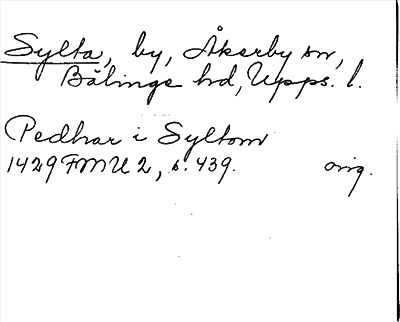 Sylta, by, Åkerby sn,
Bälings hd, Upps. l.
Pedhar i Syltom
1429 FMU 2, s. 439. orig.